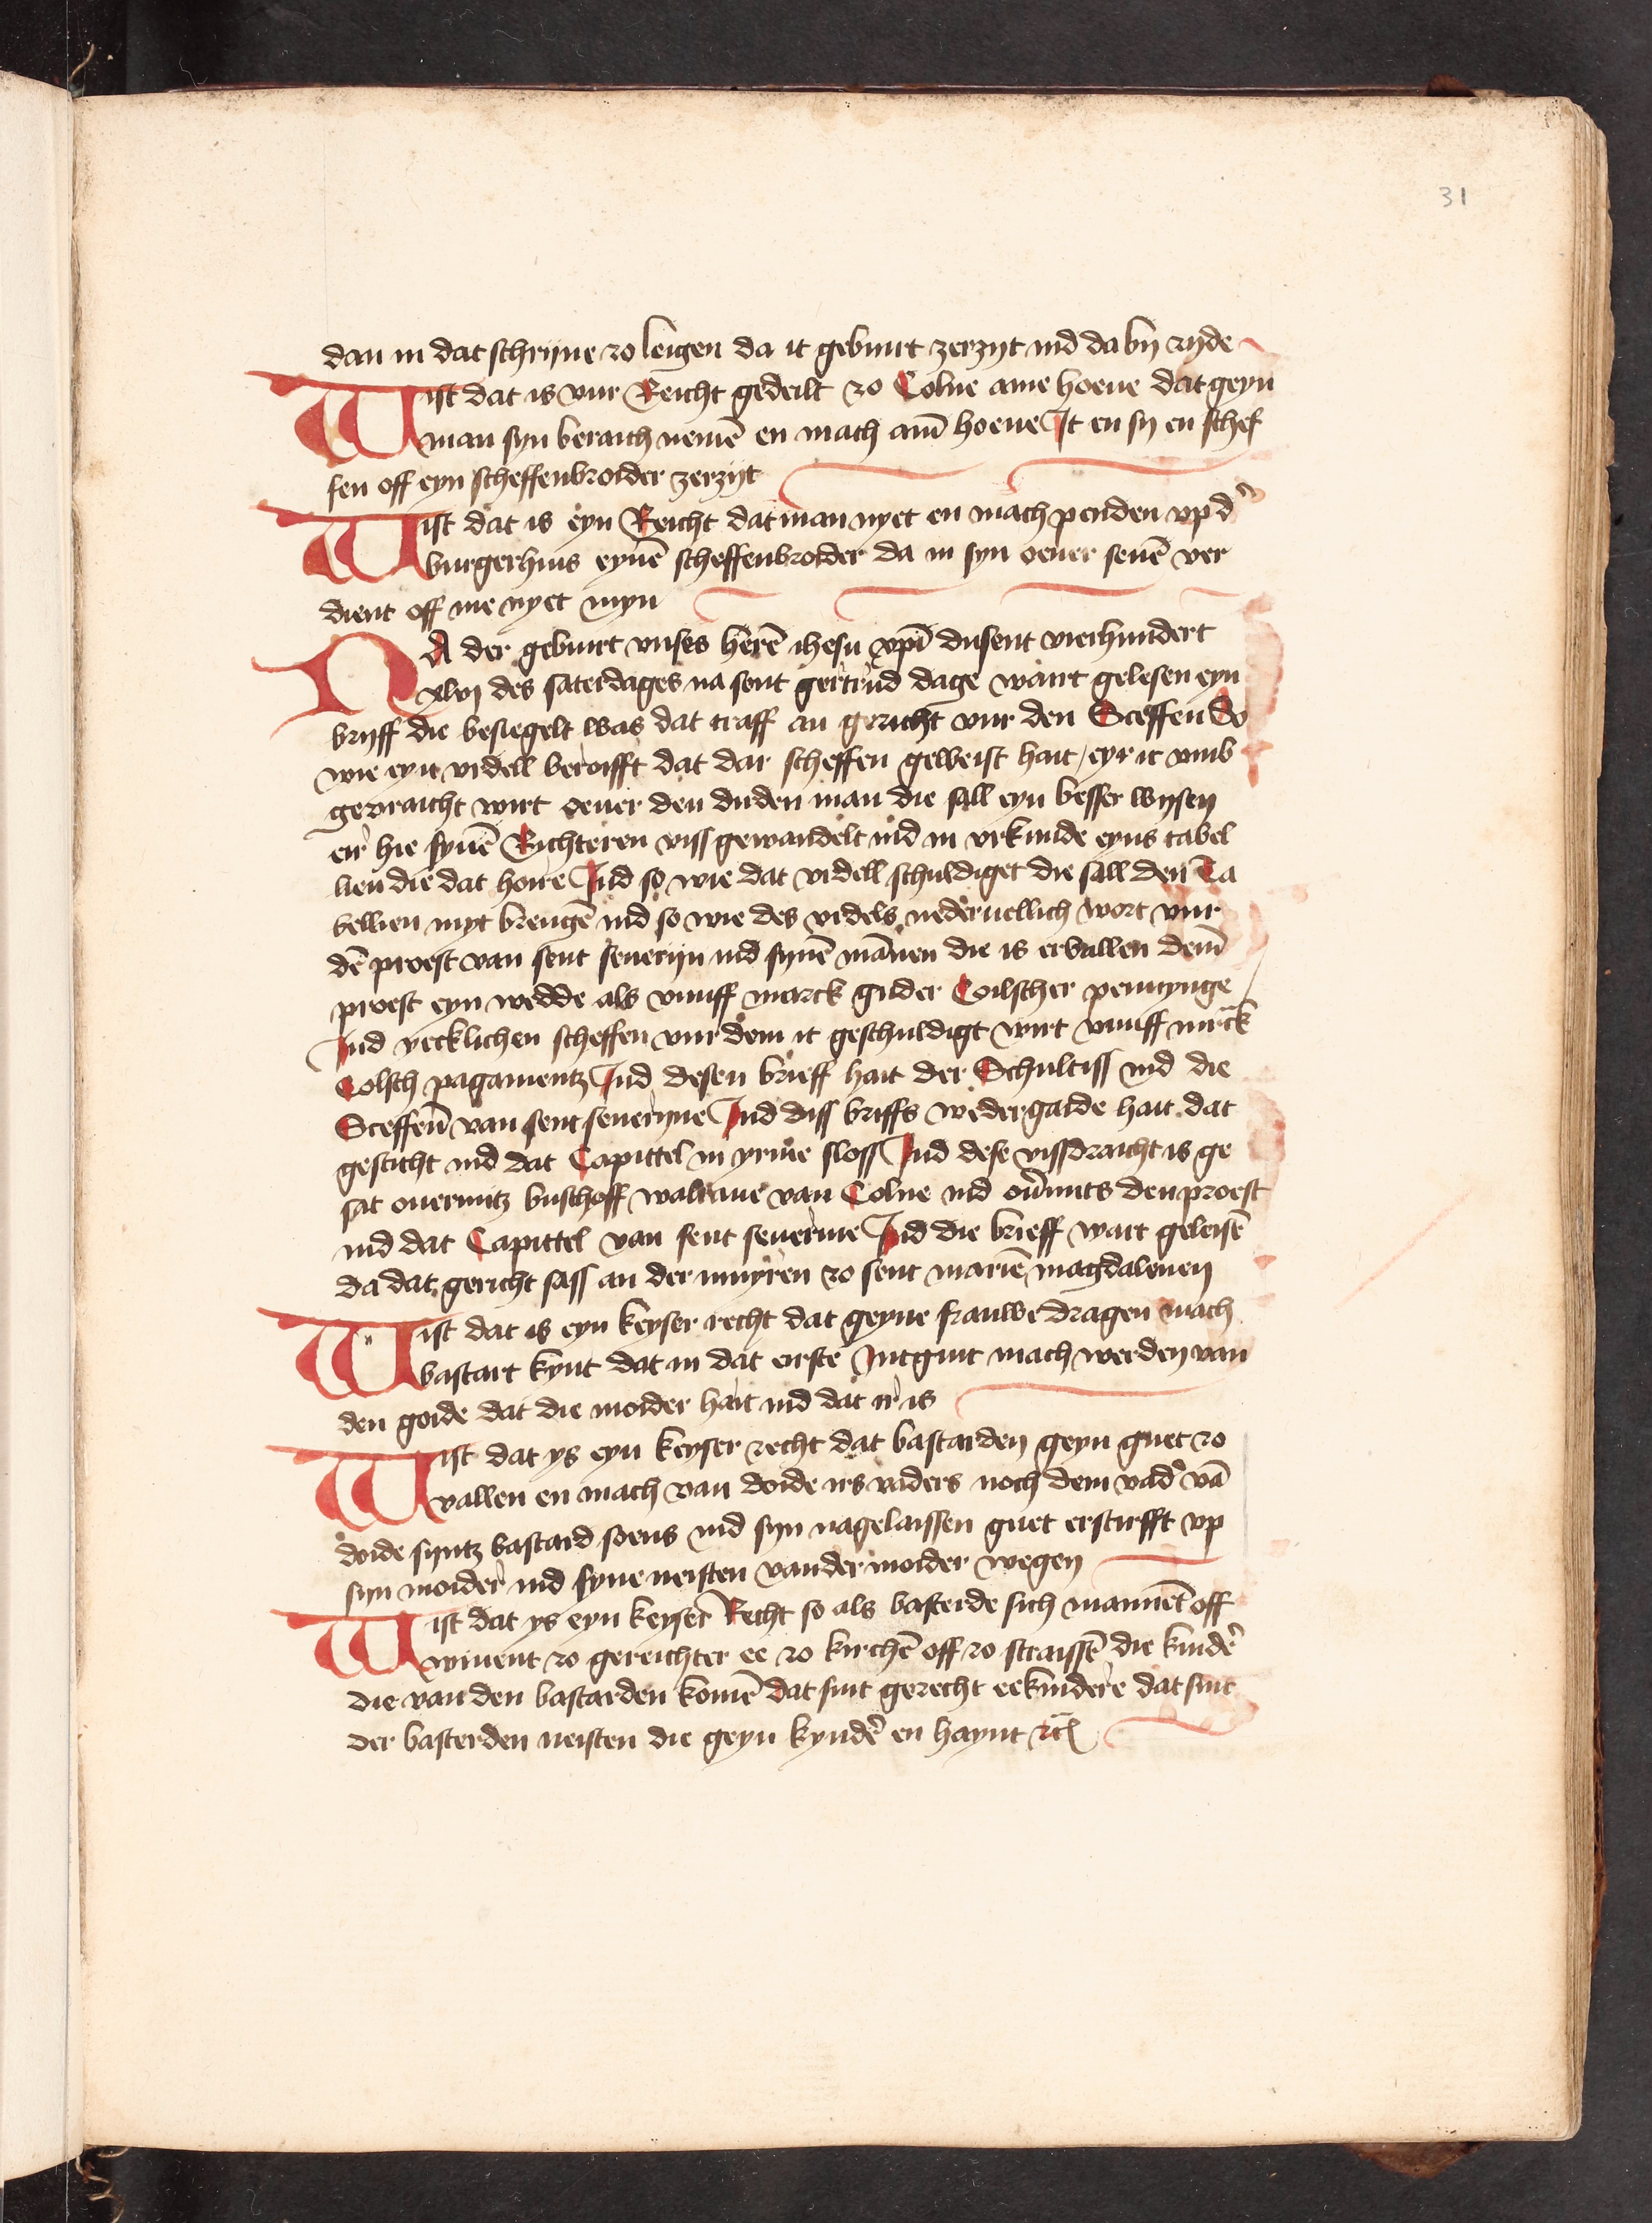 31
dan in dat schrijne zo leigen da it geburt zerzijt ind da by rijde
Wist dat is vur Reicht gedeilt zo Colne ame hoeue dat geyn
man syn beraich nemē en mach am̄ hoeue It en sy en schef
fen off eyn scheffenbroider zerzijt
Wist dat is eyn Reicht dat man nyet en mach penden vp d'
burgerhuis eynē scheffenbroider da in syn oeuer seuē ver
dient off me nyet myn
NA der geburt vnses herē ihesu xpī dusent vierhundert
xlvj des saterdages na sent gertrud dage wart gelesen eyn
brijff die besiegelt was dat traff an gericht vur den Sceffen So
wie eyn vrdell beroifft dat dar scheffen geweist hait / eyr it vmb
gevraicht wirt oeuer den dirden man die sall eyn besser wysen
eir hie synē Richteren viss gewandelt ind in vrkunde eyns tabel
lien die dat hoire Ind so wie dat vrdell schuldiget die sall den Ta
bellien myt brengē ind so wie des vrdels nederuellich wort vur
dē proest van sent seuerijn ind synē mānen die is ervallen dem̄
proest eyn wedde als vunff marck guder Coilscher pennynge
Ind yecklichen scheffen vur dem it geschuldigt wirt vunff mrck
Colsch pagamentz Ind desen brieff hait der Schultiss ind die
Sceffen̄ van sent seuerijne Ind diss briffs wedergaide hait dat
gesticht ind dat Capittel in yrme sloss Ind dese vissdraicht is ge
sat ouermitz buschoff walraue van Colne ind ou'mits den proest
ind dat Capittel van sent seuerine Ind die brieff wart geleisē
da dat gericht sass an der muyren zo sent mariē magdalenen
Wist dat is eyn keyser recht dat geyne frauwe dragen mach
bastart kynt dat in dat eirste intguit mach werden van
den goide dat die moider hait ind dat ir is
Wist dat ys eyn keyser recht dat bastarden geyn guet zo
vallen en mach van doide irs vaders noch dem vad' vā
doide syntz bastard soens ind syn nagelaissen guet erstirfft vp
syn moider ind syne neisten van der moider wegen
Wist dat ys eyn keyser Recht so als basterde sich mannēt off
wiuent zo gereichter ee zo kirchē off zo straissē die kind'
die van den bastarden komē dat sint gerecht eekindere dat sint
der basterden neisten die geyn kynd' en haynt rc̄